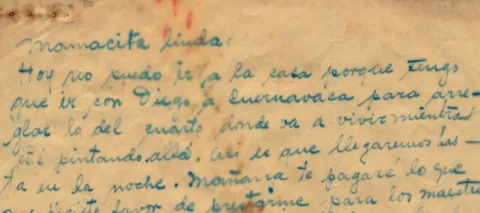 Mamacita linda:
Hoy no puedo ir a la casa porque tengo
que ir con Diego a Cuernavaca para arre-
glar lo del cuarto donde va a vivir mientras
esté pintando allá. Así es que llegaremos has-
ta en la noche. Mañana te pagaré lo que
favor de prestarme para los maestro